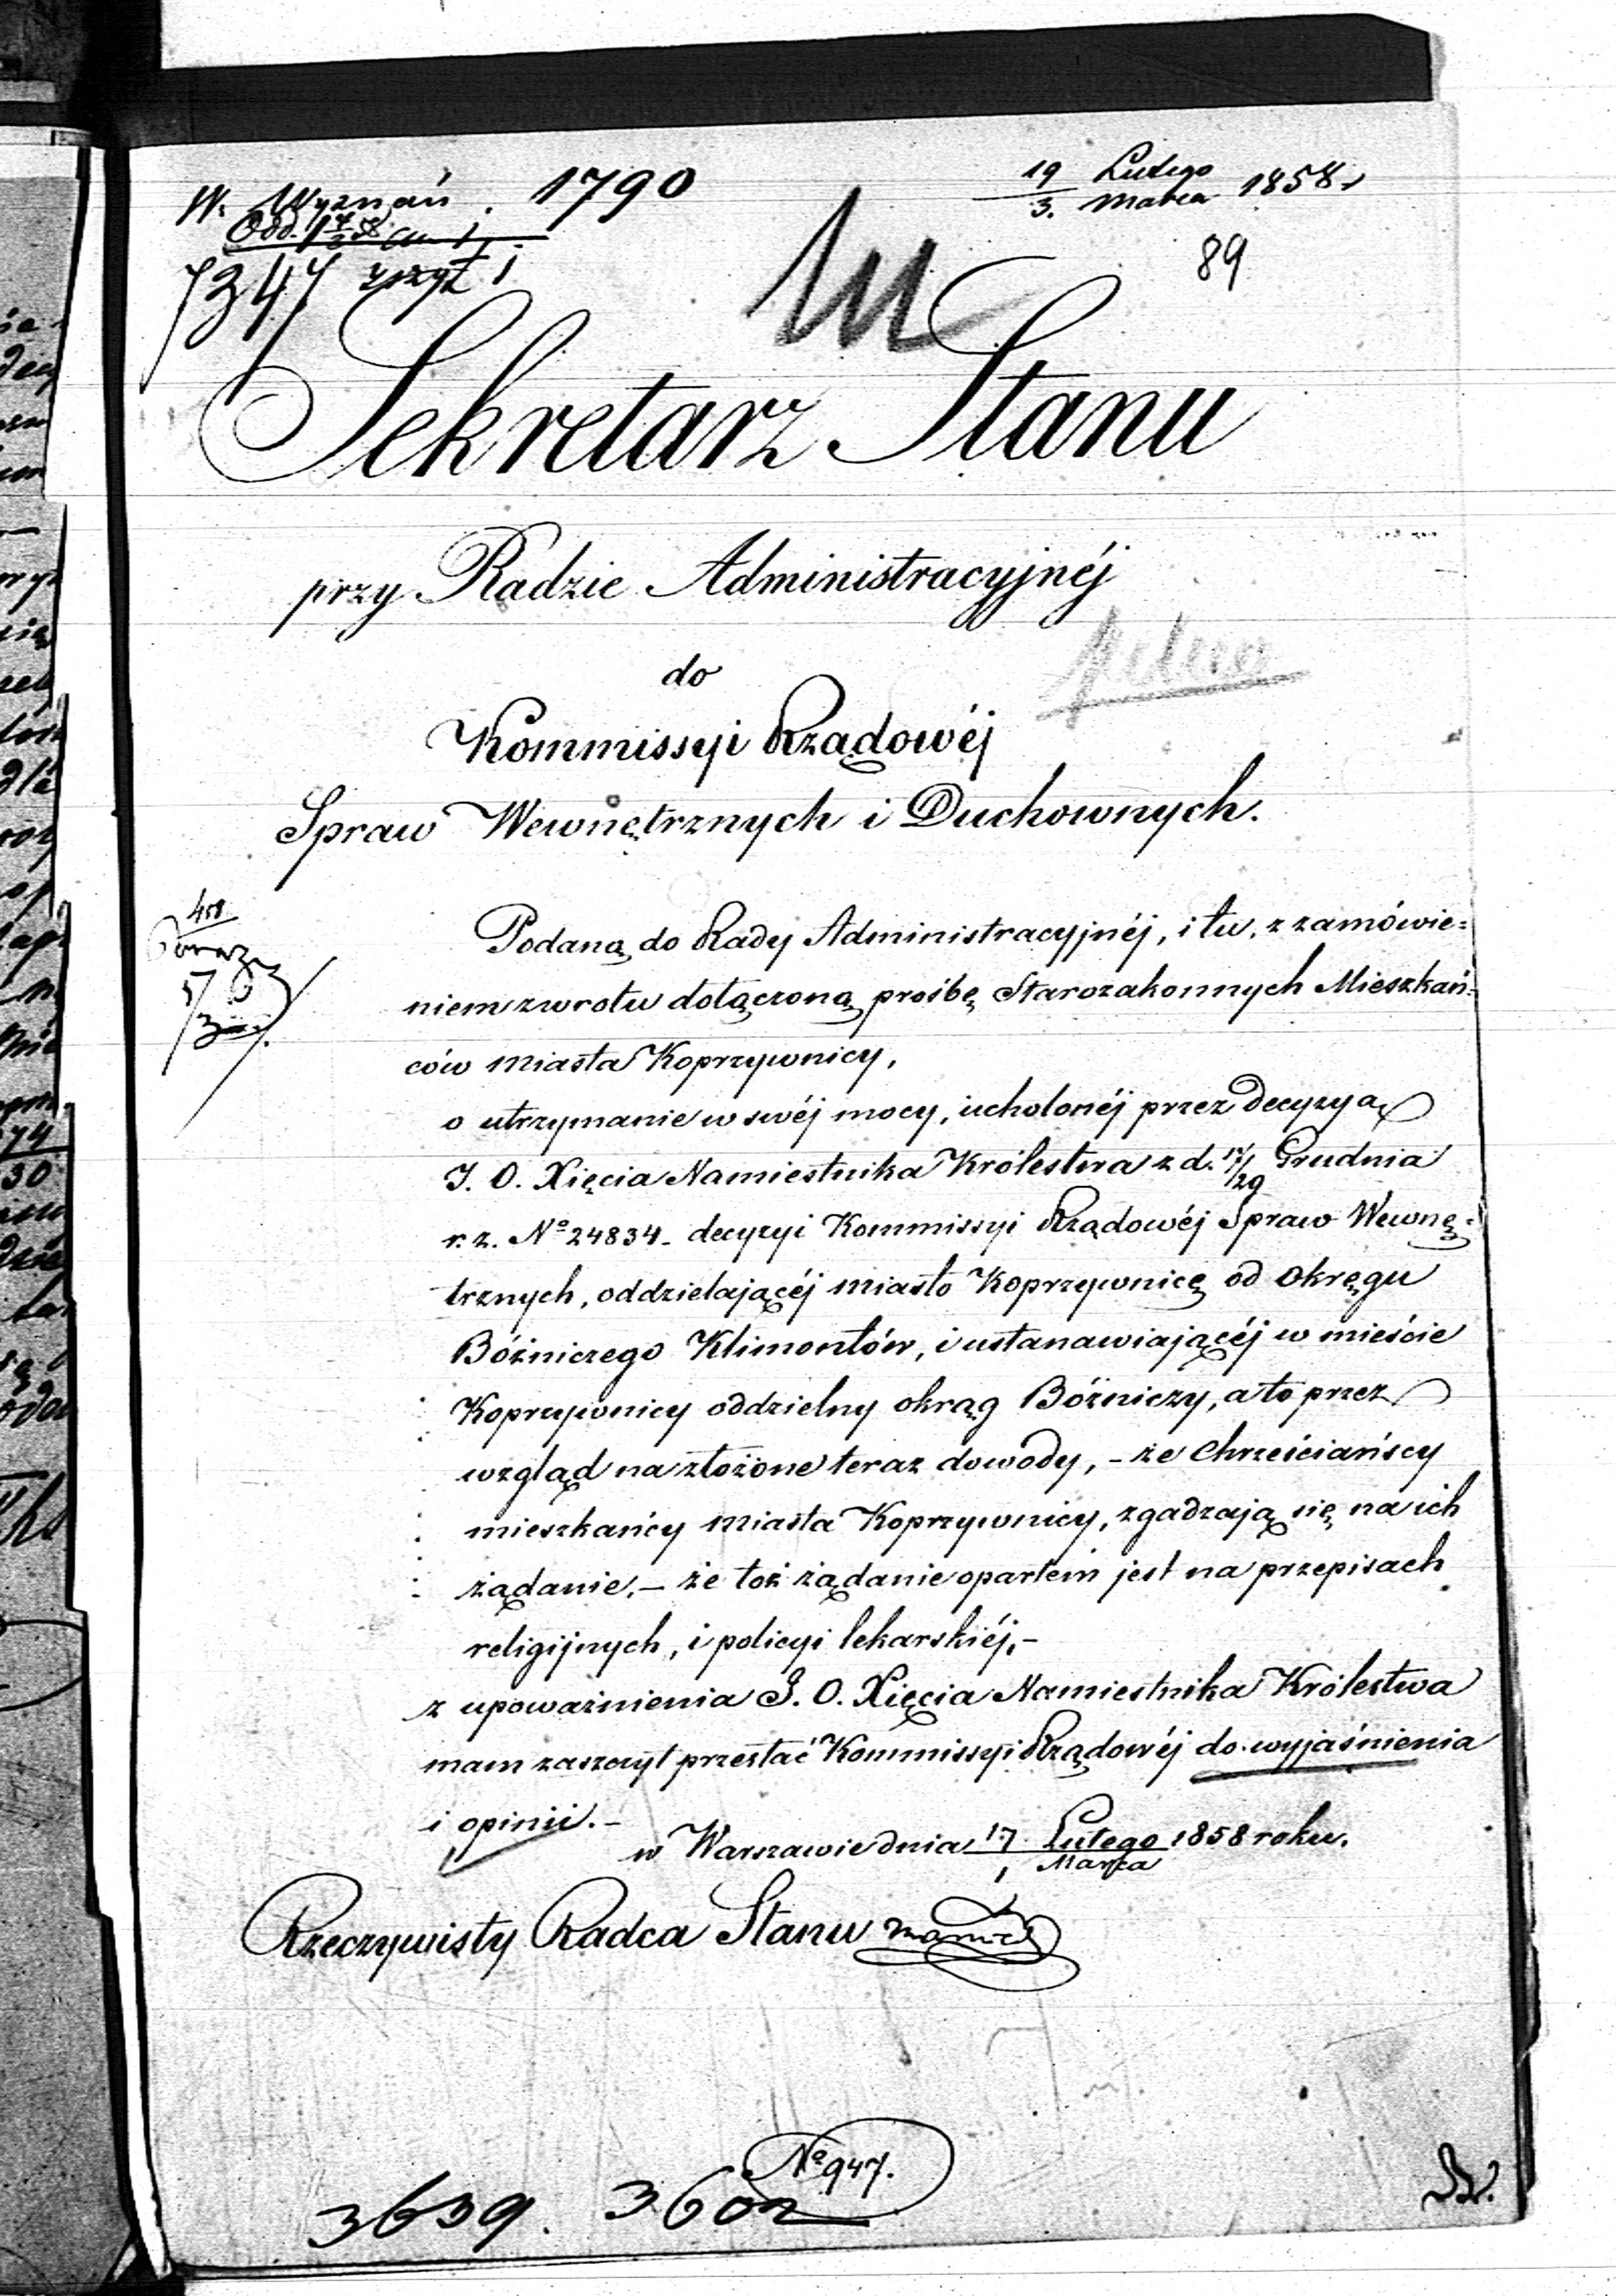 W. Wyznań. 1790
19/3. Lutego/Marca 1858 r
7347 zszyt 1
89
Sekretarz Stanu
przy Radzie Administracyjnéj
do
Kommissyi Rządowéj
Spraw Wewnętrznych i Duchownych.
Podaną do Rady Administracyjnéj, i tu, z zamówie=
niem zwrotu dołączoną prośbę Starozakonnych Mieszkań=
ców miasta Koprzywnicy,
o utrzymanie w swéj mocy, ucholonéj przez decyzyą
J. O. Xięcia Namiestnika Królestwa z d. 17/29 Grudnia
r. z. Nº 24834 - decyzyi Kommissyi Rządowéj Spraw Wewnę=
trznych, oddzielającéj miasto Koprzywnicę od okręgu
Bóżniczego Klimontów, i ustanawiającéj w mieście
Koprzywnicy oddzielny okrąg Bóżniczy, a to przez
wzgląd na złożone teraz dowody, - że Chrześciańscy
mieszkańcy miasta Koprzywnicy, zgadzają się na ich
żądanie, - że toż żądanie opartem jest na przepisach
religijnych, i policyi lekarskiéj, -
z upoważnienia J. O. Xięcia Namiestnika Królestwa
mam zaszczyt przesłać Kommissyi Rządowéj do wyjaśnienia
i opinii. -
w Warszawie dnia 17/1 Lutego/Marca 1858 roku.
Rzeczywisty Radca Stanu
Nº 947.
3639. 3602